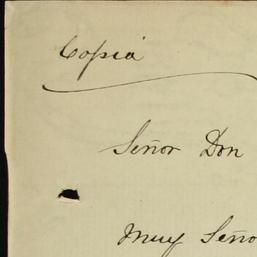 Copia
Señor Don
Muy Seño